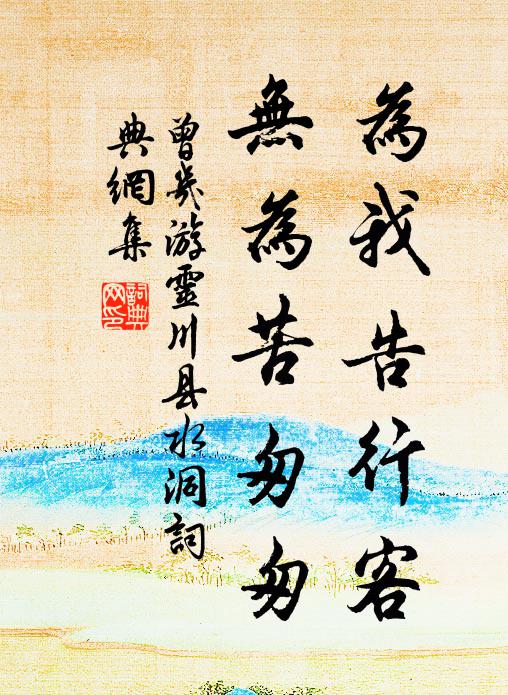 為我告行客
無為苦匆匆
曾幾游靈川县水洞詞
典網集
詞典
网印